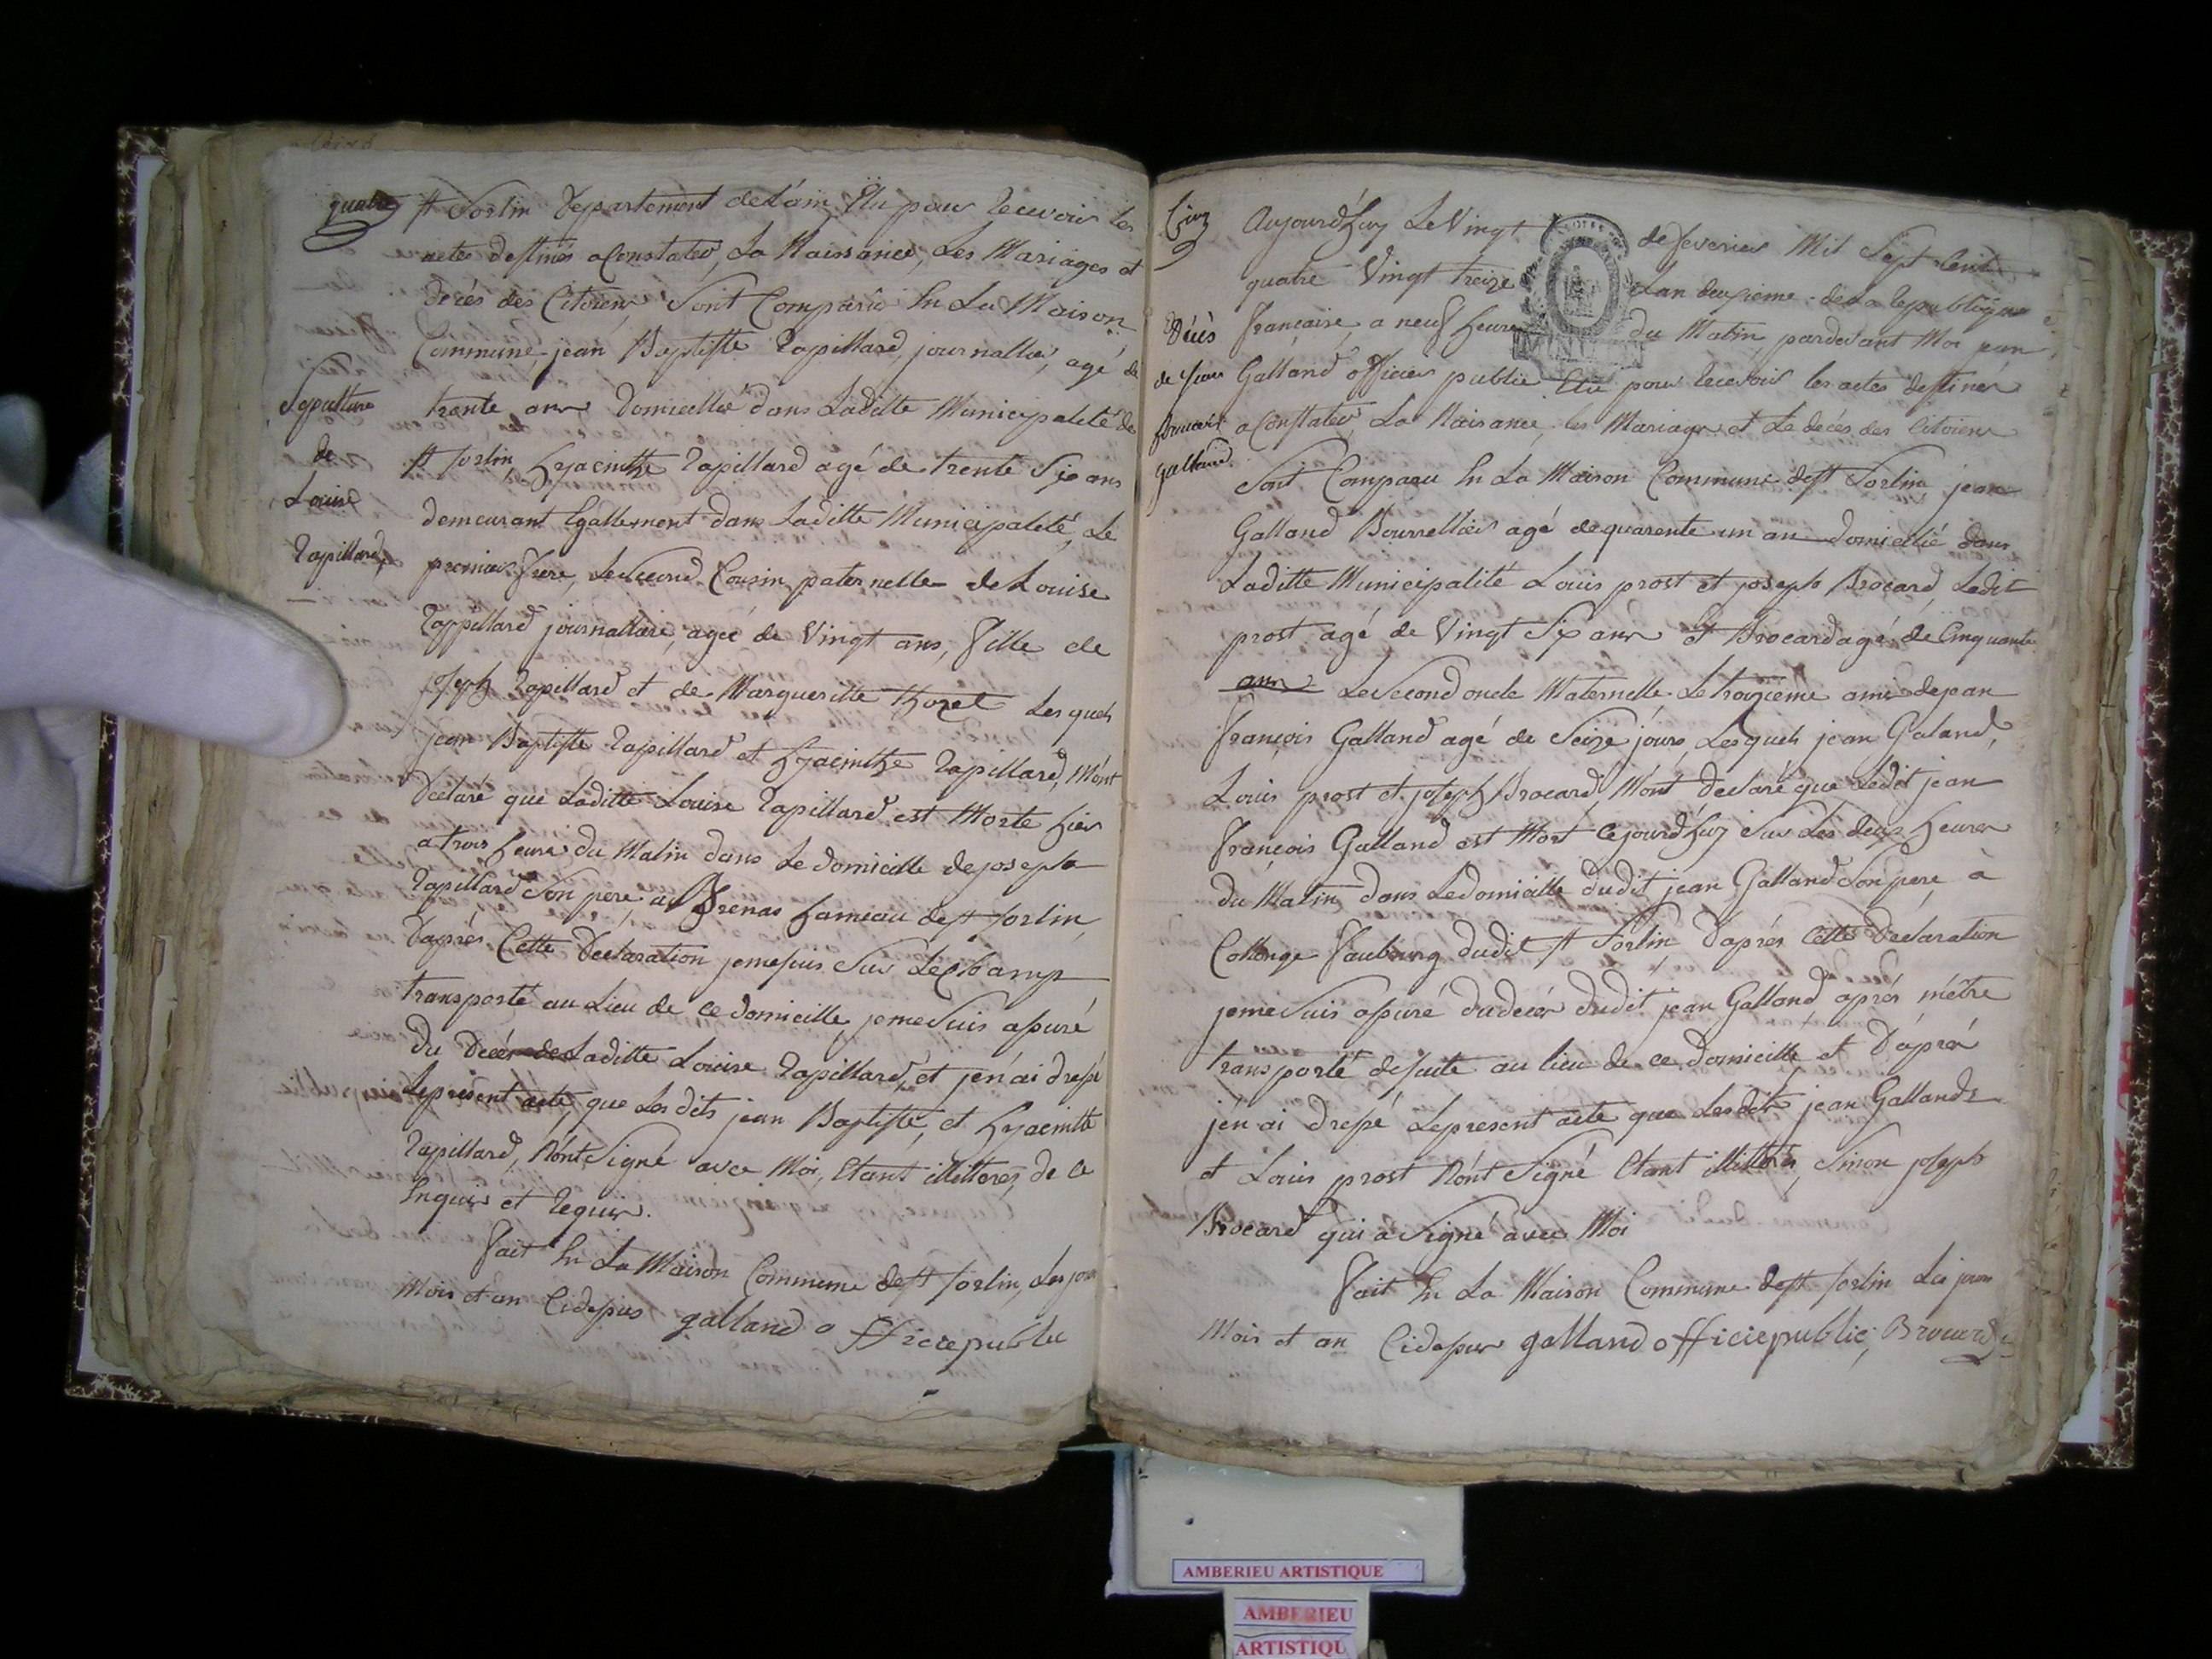 quatre
St Sorlin Departement de L'ain Elu pour Recevoir les
actes destinés a Constater, La Naissance, Les Mariages et
decés des Citoiens Sont Comparu En La Maison
Commune, jean Baptiste Rapillard, journallier, agé de
trente ans Domicillié dans Laditte Municipalité de
St Sorlin, hyacinthe Rapillard agé de trente Six ans
demeurant Egallement dans Laditte Municipalité, Le
premier frere, Le Second Cousin paternelle de Louise
Rappillard journalliere, agée de Vingt ans, fille de
joseph Rapillard et de Margueritte thozet Les quels
jean Baptiste Rapillard et hyacinthe Rapillard, M'ont
Déclaré que Laditte Louise Rapillard est Morte hier
a trois heures du Matin dans Le domicille de joseph
Rapillard Son pere au frenas hameau de St Sorlin,
D'aprés Cette Declaration je me suis Sur Le Champ
transporté au Lieu de ce domicille, je me Suis assuré
du Decés de Laditte Louise Rapillard, et j'en ai dressé
Le présent acte, que Les dits jean Baptiste, et hyacintte
Rapillard, N'ont Signé avec Moi, Etant illitterés, de ce
Enquis et Requis.
fait En La Maison Commune de St Sorlin, Les jour
Mois et an Cidessus galland officiepublic
Sepulture
de
Louise
Rapillard
Cinq
Aujourd'huy Le Vingt de fevrier Mil Sept Cent
quatre Vingt treize Lan deuxieme de La Republique
française, a neuf heures du Matin, pardevant Moi jean
Galland officier public Elu pour Recevoir les actes destinés
a Constater La Naisance, les Mariages et Le decés des Citoiens
Sont Comparu En La Maison Commune de St Sorlin jean
Galland Bourrellier agé de quarente un an domicilié dans
Laditte Municipalité Louis prost et joseph Brocard, Ledit
prost agé de Vingt Six ans et Brocard agé de Cinquante
ans Le Second oncle Maternelle Le troizieme ami de jean
françois Galland agé de Seize jours, Lesquels jean Galand,
Louis prost et joseph Brocard, M'ont declaré que Ledit jean
françois Galland est Mort Cejourd'huy Sur Les deux heures
du Matin dans Le domicille dudit jean Galland Son pere à
Collonge faubourg dudit St Sorlin, d'aprés Cette Declaration
je me Suis assuré du decés dudit jean Galland aprés m'étre
transporté de suite au lieu de ce domicille et D'aprés
j'en ai dressé Le present acte que Lesdits jean Galland
et Louis prost N'ont Signé Etant illitterés, Sinon joseph
Brocard qui a Signé avec Moi
fait En La Maison Commune de St Sorlin Les jour
Mois et an Cidessus galland officiepublic, Brocard
Décès
de jean
françois
galland
AMBERIEU ARTISTIQUE
AMBERIEU
ARTISTIQU